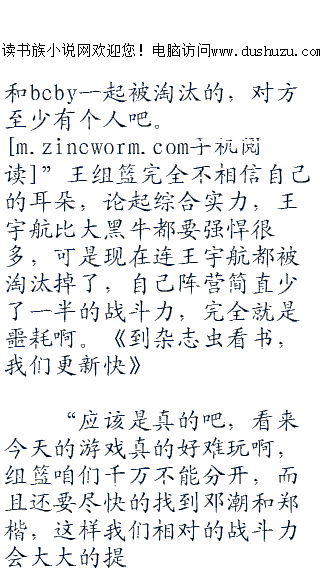 读书族小说网欢迎您！电脑访问www.dushuzu.com
和bcby一起被淘汰的，对方
至少有个人吧。
[m.zincworm.com手机阅
读]”王组篮完全不相信自己
的耳朵，论起综合实力，王
宇航比大黑牛都要强悍很
多，可是现在连王宇航都被
淘汰掉了，自己阵营简直少
了一半的战斗力，完全就是
噩耗啊。《到杂志虫看书，
我们更新快》
“应该是真的吧，看来
今天的游戏真的好难玩啊，
组篮咱们千万不能分开，而
且还要尽快的找到邓潮和郑
楷，这样我们相对的战斗力
会大大的提